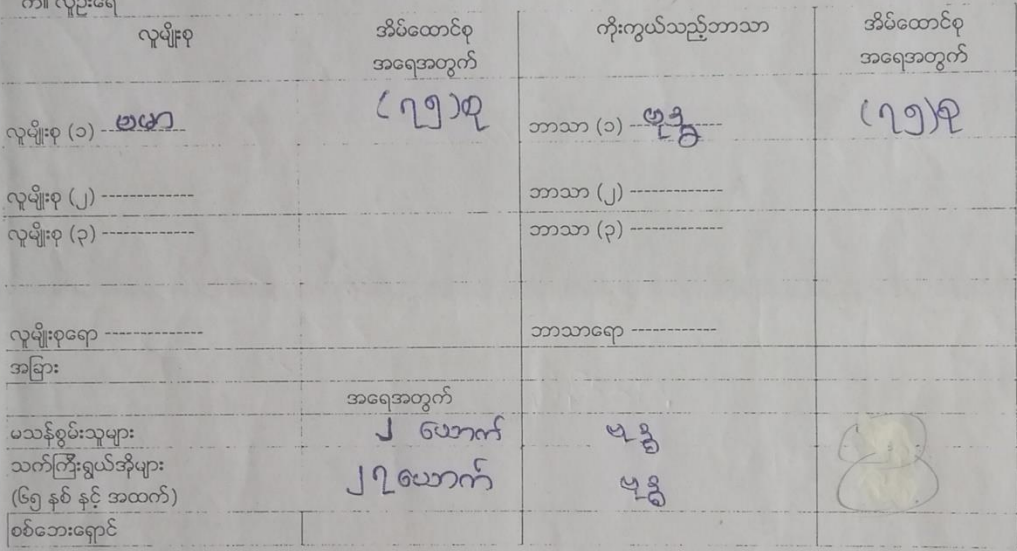 က။ လူဦးရေ
လူမျိုးစု အိမ်ထောင်စု အရေအတွက် ကိုးကွယ်သည့်ဘာသာ အိမ်ထောင်စု အရေအတွက်
လူမျိုးစု (၁) ဗမာ (၇၅)စု ဘာသာ (၁) ဗုဒ္ဓ (၇၅)စု
လူမျိုးစု (၂) ------------- ဘာသာ (၂) -------------
လူမျိုးစု (၃) ------------- ဘာသာ (၃) -------------
လူမျိုးစုရော -------------- ဘာသာရော ------------
အခြား
အရေအတွက်
မသန်စွမ်းသူများ ၂ ယောက် ဗုဒ္ဓ
သက်ကြီးရွယ်အိုများ
(၆၅ နှစ် နှင့် အထက်) ၂၇ယောက် ဗုဒ္ဓ
စစ်ဘေးရှောင်